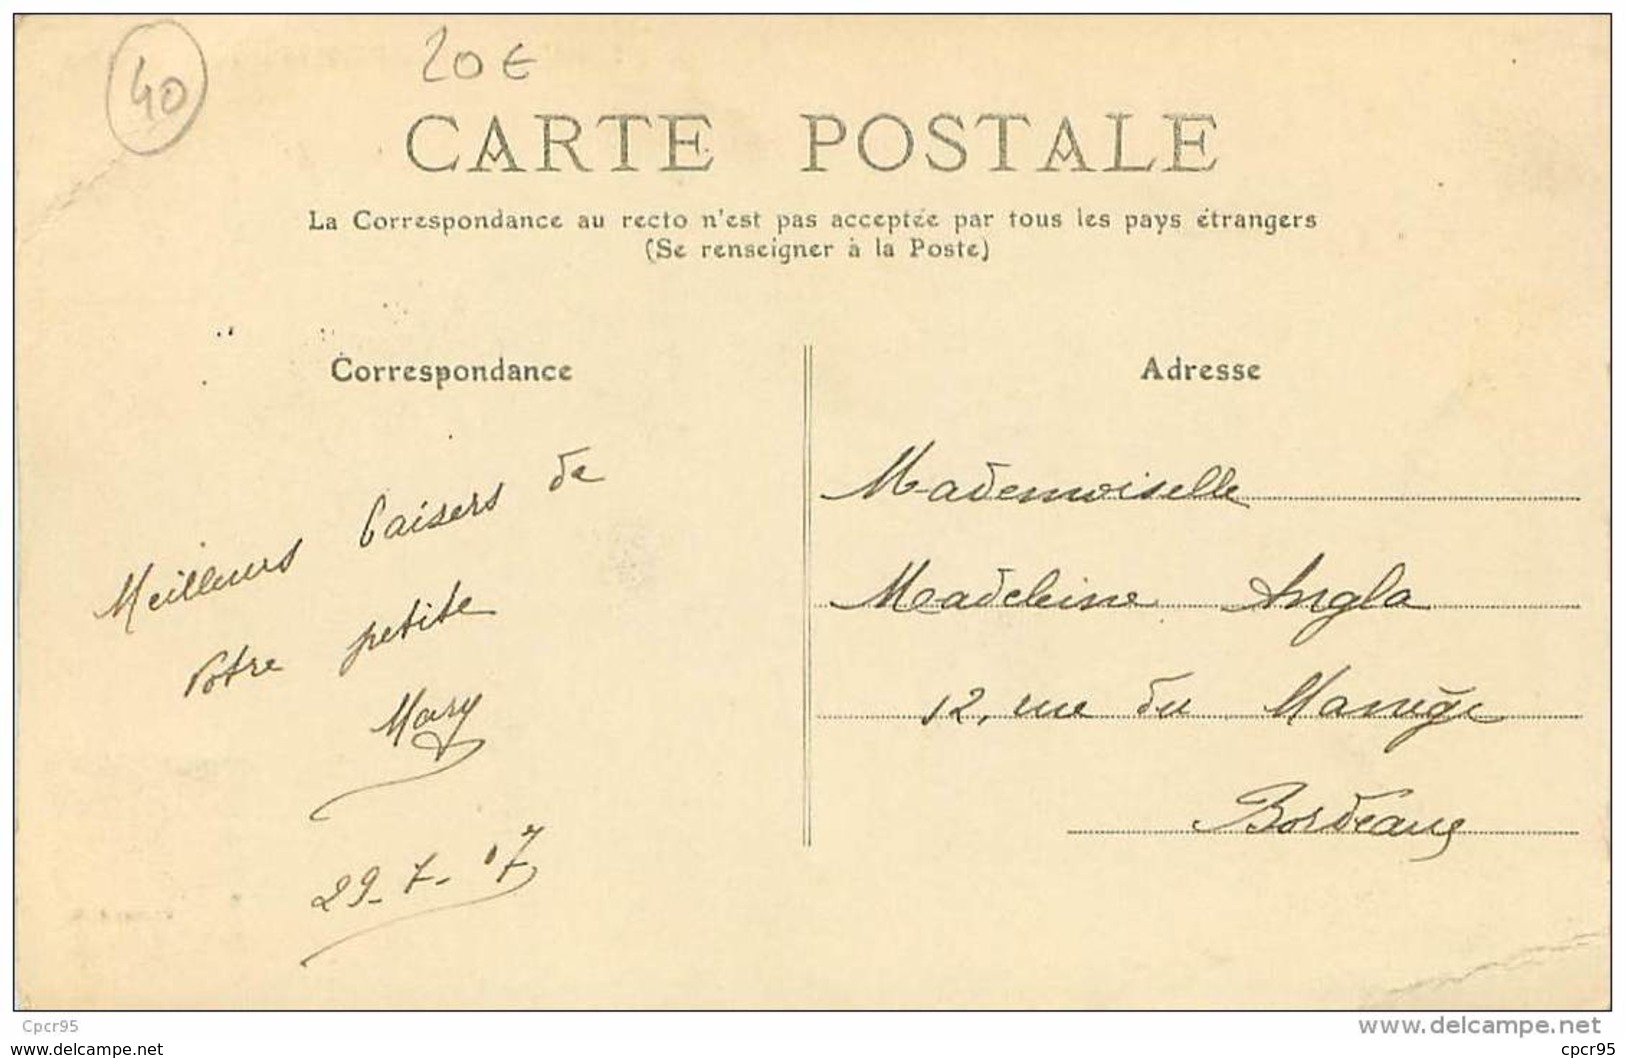 40
20€
CARTE POSTALE
La Correspondance au recto n'est pas acceptée par tous les pays étrangers
(Se renseigner à la Poste)
Correspondance
Meilleurs baisers de
votre petite
Mary
29-7-07
Adresse
Mademoiselle
Madeleine Angla
12, rue du Manège
Bordeaux
Cpcr95
www.delcampe.net
www.delcampe.net
cpcr95